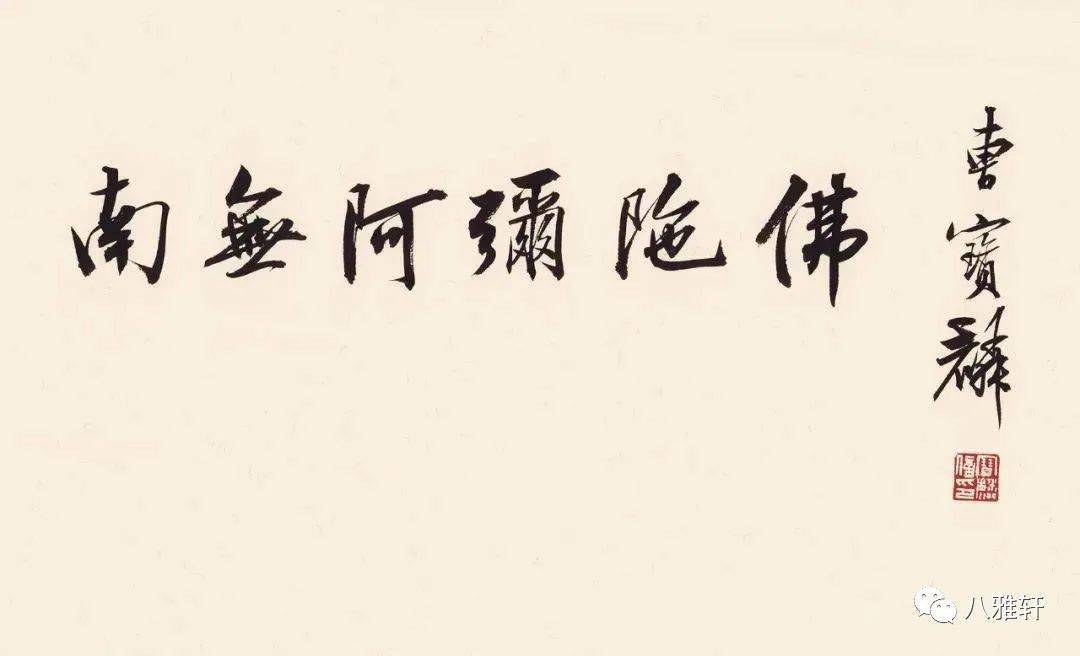 南無阿彌陀佛
曹寶麟
八雅轩